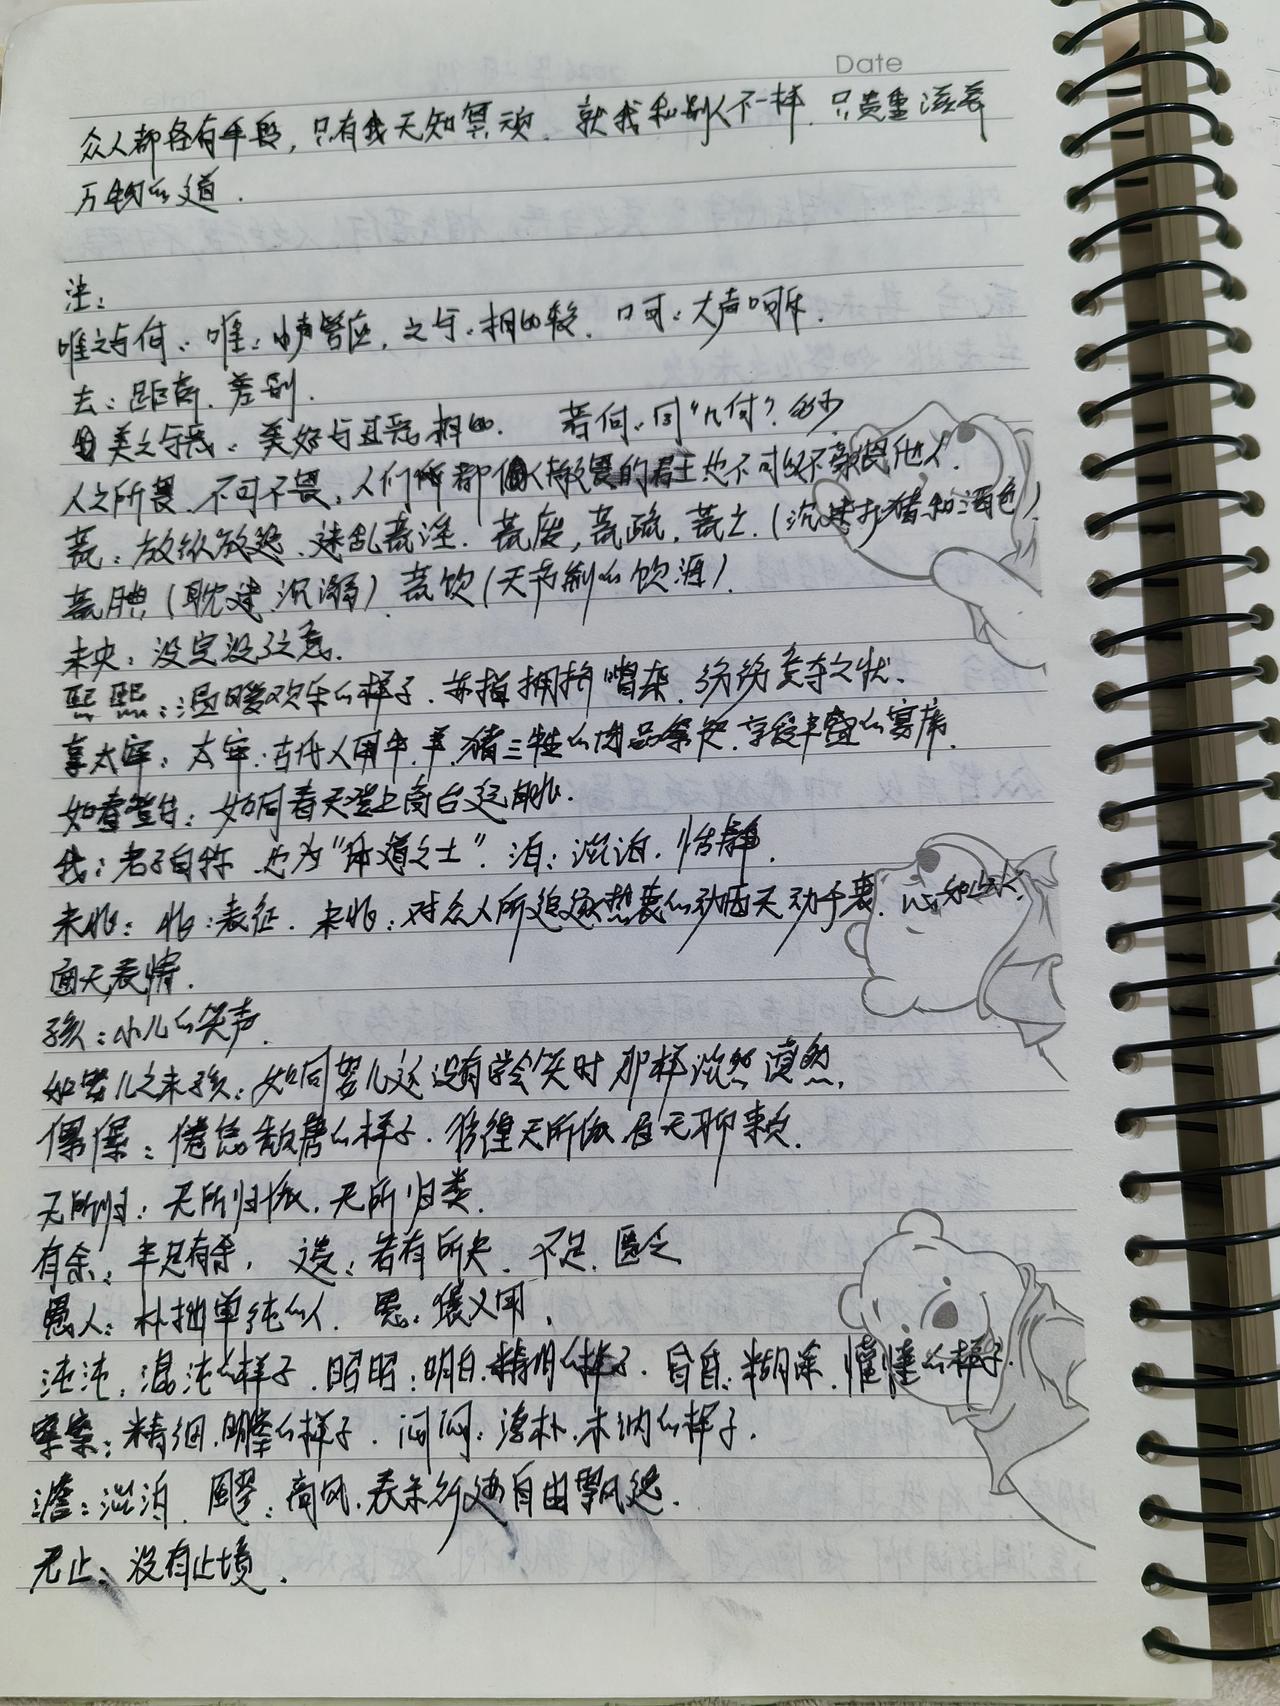 Date
众人都各有手段，只有我无知冥顽．就我和别人不一样．只贵重滋养
万物的道．
注：
唯之与何：唯：小声答应．之与：相比较．呵：大声呵斥．
去：距离．差别．
美之与恶：美好与丑恶相比．若何：同“几何？多少
人之所畏．不可不畏：人们都敬畏的君王也不可以不畏惧他人．
荒：放纵放逸．迷乱荒淫．荒废，荒疏，荒亡．（沉迷打猎和酒色）
荒腆（耽迷．沉溺）荒饮（无节制的饮酒）
未央：没完没了之意．
熙熙：温暖欢乐的样子．亦指拥挤嘈杂．纷纷争夺之状．
享太牢：太牢：古代人用牛．羊．猪三牲的祭．享受丰盛的宴席．
如春登台：如同春天登上高台远眺．
我：老子自称 也为“体道之士”．泊：淡泊．恬静．
未兆：兆：表征．未兆：对众人所追逐热衷的动西无动于衷．
面无表情．
孩：小儿的笑声．
如婴儿之未孩：如同婴儿还没有学会笑时那样淡然漠然．
儽儽：倦怠颓唐的样子．彷徨无所依．百无聊赖．
无所归：无所归依．无所归类．
有余：丰足有余． 遗：若有所失．不足．匮乏
愚人：朴拙单纯的人． 愚：褒义用．
沌沌：混沌的样子．昭昭：明白．精明的样子．昏昏：糊涂．懵懂的样子．
察察：精细．明察的样子．闷闷：淳朴．木讷的样子．
澹：淡泊． 飂：高风．表示行迹自由飘逸．
无止：没有止境．